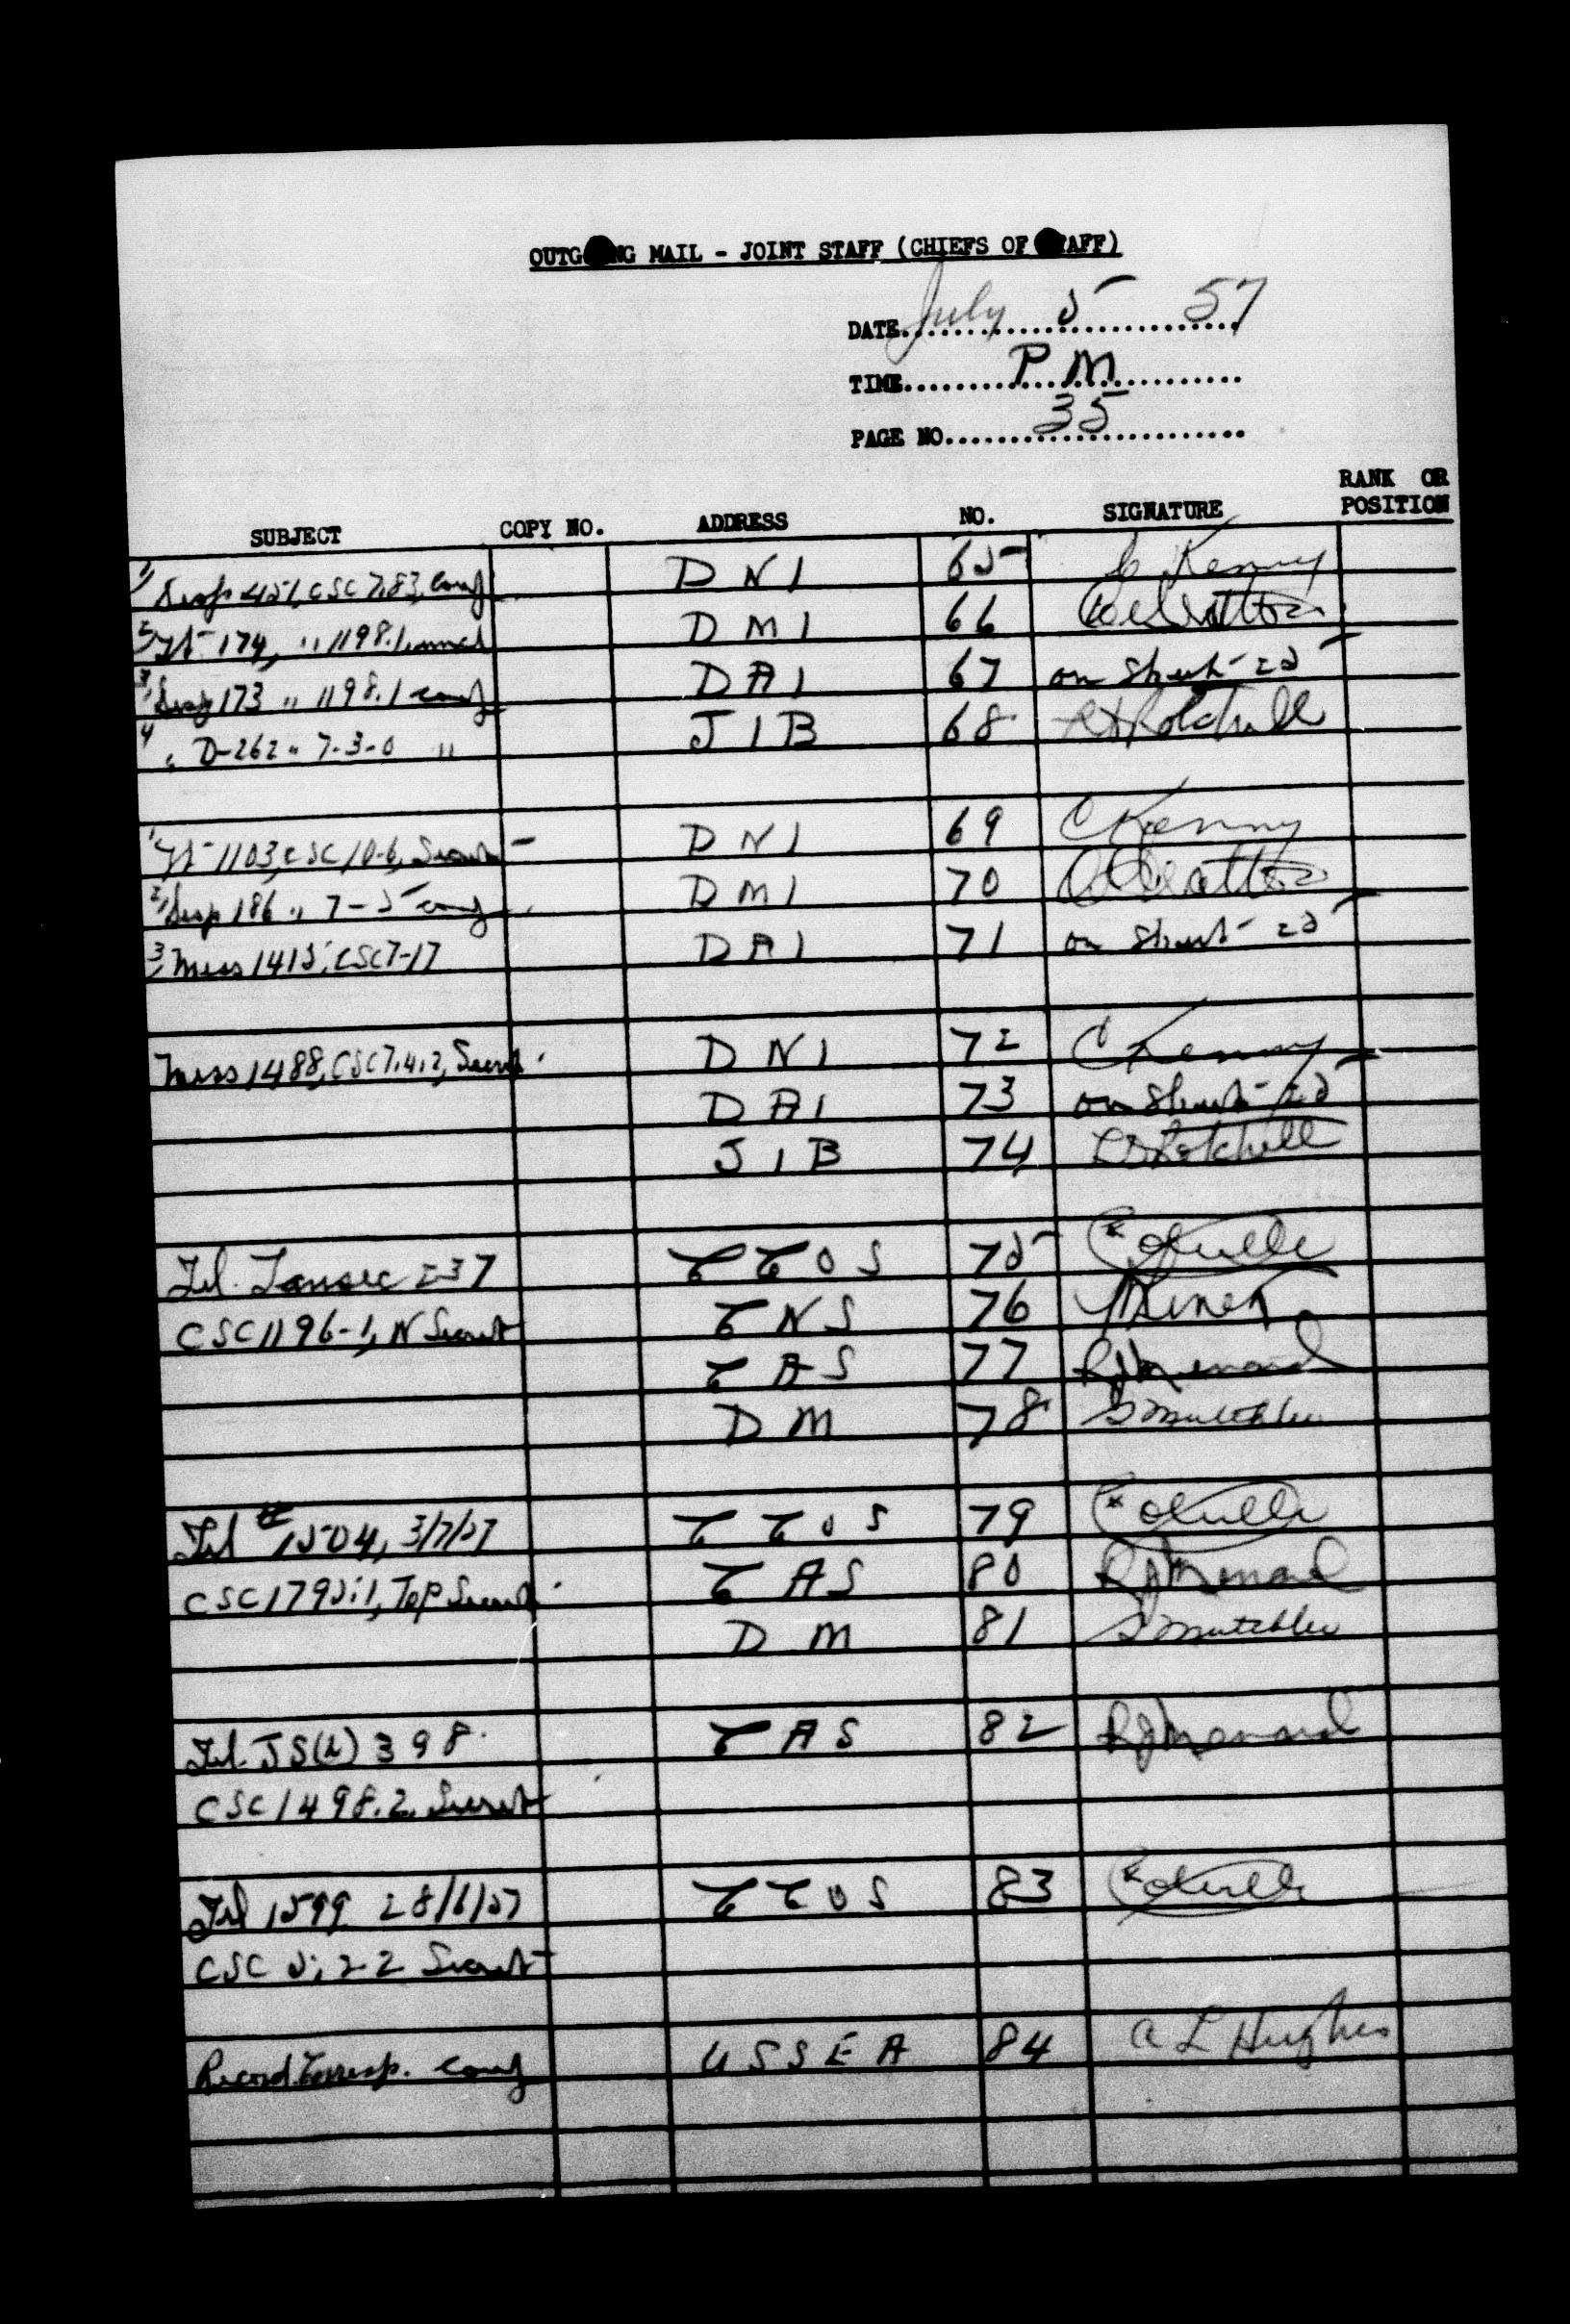 OUTGOING MAIL - JOINT STAFF (CHIEFS OF STAFF)
DATE July 5 57
TIME P M
PAGE NO. 35
SUBJECT COPY NO. ADDRESS NO. SIGNATURE RANK OR POSITION
1, Desp 451, CSC 7.83, Conf D N I 65 C Kenny
2, 174, " 1198.1 D M I 66
3, Desp 173 " 1198.1 conf D A I 67 on Sheet 25
4 " D-262 " 7-3-0 " J I B 68
1, 1103, CSC 10-6, Secret D N I 69 C Kenny
2, Desp 186 " 7-5 conf D M I 70
3, Mess 1415, CSC 7-17 D A I 71 on Sheet 25
Mess 1488, CSC 7.4.2, Secret D N I 72 C Kenny
D A I 73 on Sheet 25
J I B 74
Tel. Tansec 237 C C O S 75
CSC 1196-1, N Secret C N S 76
C A S 77 R J Menard
D M 78 S Mutchler
Tel # 1504, 3/7/57 C C O S 79
CSC 1795.1, Top Secret C A S 80 R J Menard
D M 81 S Mutchler
Tel. JS(L) 398 C A S 82 R J Menard
CSC 1498.2, Secret
Tel 1599 28/6/57 C C O S 83
CSC 5.22 Secret
Record Corresp. conf U S S E A 84 A L Hughes